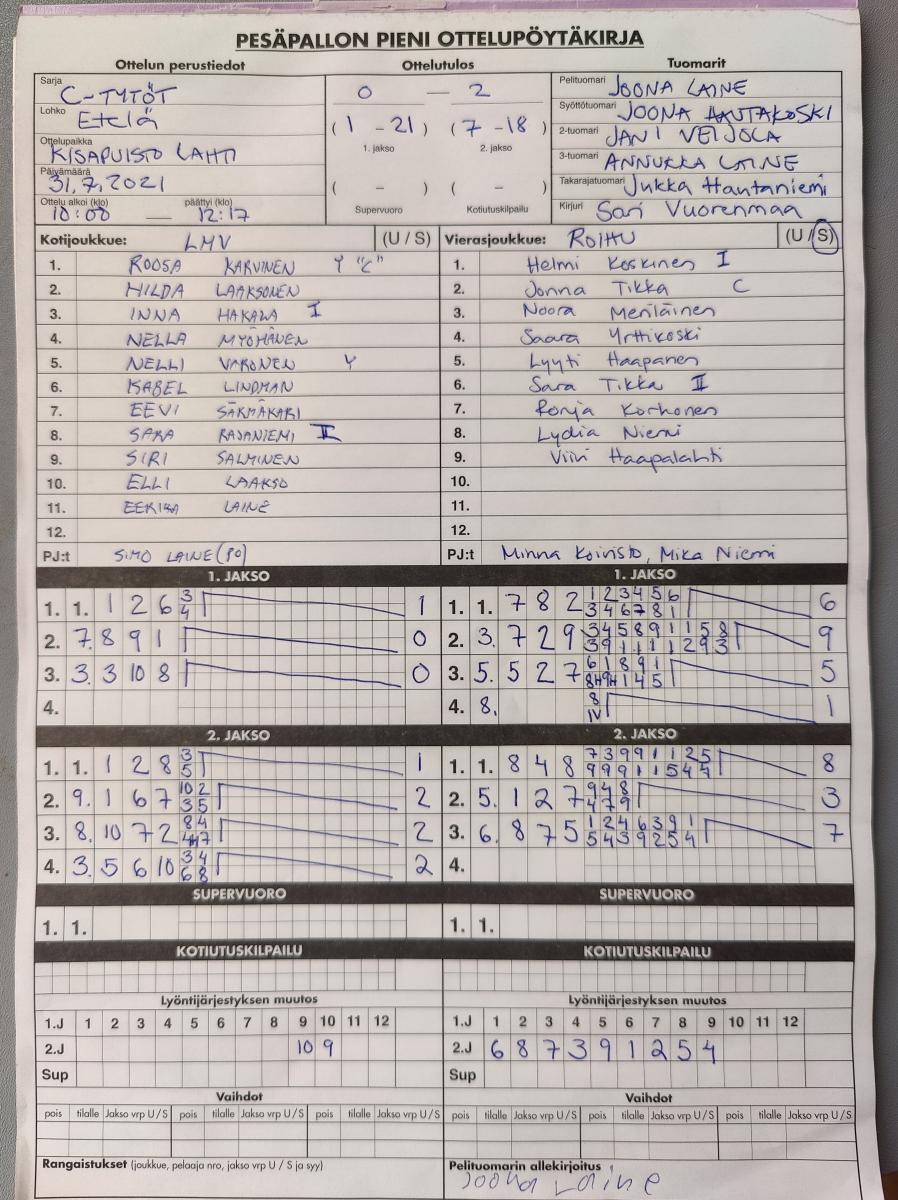 PESÄPALLON PIENI OTTELUPÖYTÄKIRJA
Ottelun perustiedot Ottelutulos Tuomarit
Sarja C-TYTÖT
Lohko Etelä
Ottelupaikka KISAPUISTO LAHTI
Päivämäärä 31.7.2021
Ottelu alkoi (klo) 10:00 — päättyi (klo) 12:17
0 — 2
(1 - 21) (7 - 18)
1. jakso 2. jakso
( - ) ( - )
Supervuoro Kotiutuskilpailu
Pelituomari JOONA LAINE
Syöttötuomari JOONA HAUTAKOSKI
2-tuomari JANI VEIJOLA
3-tuomari ANNUKKA LAINE
Takarajatuomari Jukka Hautaniemi
Kirjuri Sari Vuorenmaa
Kotijoukkue: LMV (U / S)
1. ROOSA KARVINEN Y "C"
2. HILDA LAAKSONEN
3. INNA HAKALA I
4. NELLA MYÖHÄNEN
5. NELLI VARONEN Y
6. ISABEL LINDMAN
7. EEVI SÄRMÄKARI
8. SARA RAJANIEMI II
9. SIRI SALMINEN
10. ELLI LAAKSO
11. LAINE
12.
PJ:t SIMO LAINE (PO)
Vierasjoukkue: ROIHU (U / S)
1. Helmi Koskinen I
2. Jonna Tikka C
3. Noora Meriläinen
4. Saara Yrttikoski
5. Lyyti Haapanen
6. Sara Tikka II
7. Ronja Korhonen
8. Lydia Niemi
9. Viivi Haapalahti
10.
11.
12.
PJ:t Minna Koivisto, Mika Niemi
1. JAKSO
1. 1. 1 2 6 3 1
4
2. 7. 8 9 1 0
3. 3. 3 10 8 0
4.
2. JAKSO
1. 1. 1 2 8 3 1
5
2. 9. 1 6 7 10 2 2
3 5
3. 8. 10 7 2 8 4 2
7
4. 3. 5 6 10 3 4 2
6 8
SUPERVUORO
1. 1.
KOTIUTUSKILPAILU
Lyöntijärjestyksen muutos
1.J 1 2 3 4 5 6 7 8 9 10 11 12
2.J 10 9
Sup
Vaihdot
pois tilalle Jakso vrp U / S pois tilalle Jakso vrp U / S pois tilalle Jakso vrp U / S
Rangaistukset (joukkue, pelaaja nro, jakso vrp U / S ja syy)
1. JAKSO
1. 1. 7 8 2 1 2 3 4 5 6 6
3 4 6 7 8 1
2. 3. 7 2 9 3 4 5 8 9 1 1 5 8 9
3 9 1 1 1 1 2 9 3
3. 5. 5 2 7 6 1 8 9 1 5
8H 9H 1 4 5
4. 8. 8 1
IV
2. JAKSO
1. 1. 8 4 8 7 3 9 9 1 1 2 5 8
9 9 9 1 1 5 4 4
2. 5. 1 2 7 9 4 8 3
4 7 9
3. 6. 8 7 5 1 2 4 6 3 9 1 7
5 4 3 9 2 5 4
4.
SUPERVUORO
1. 1.
KOTIUTUSKILPAILU
Lyöntijärjestyksen muutos
1.J 1 2 3 4 5 6 7 8 9 10 11 12
2.J 6 8 7 3 9 1 2 5 4
Sup
Vaihdot
pois tilalle Jakso vrp U / S pois tilalle Jakso vrp U / S pois tilalle Jakso vrp U / S
Pelituomarin allekirjoitus
Joona Laine